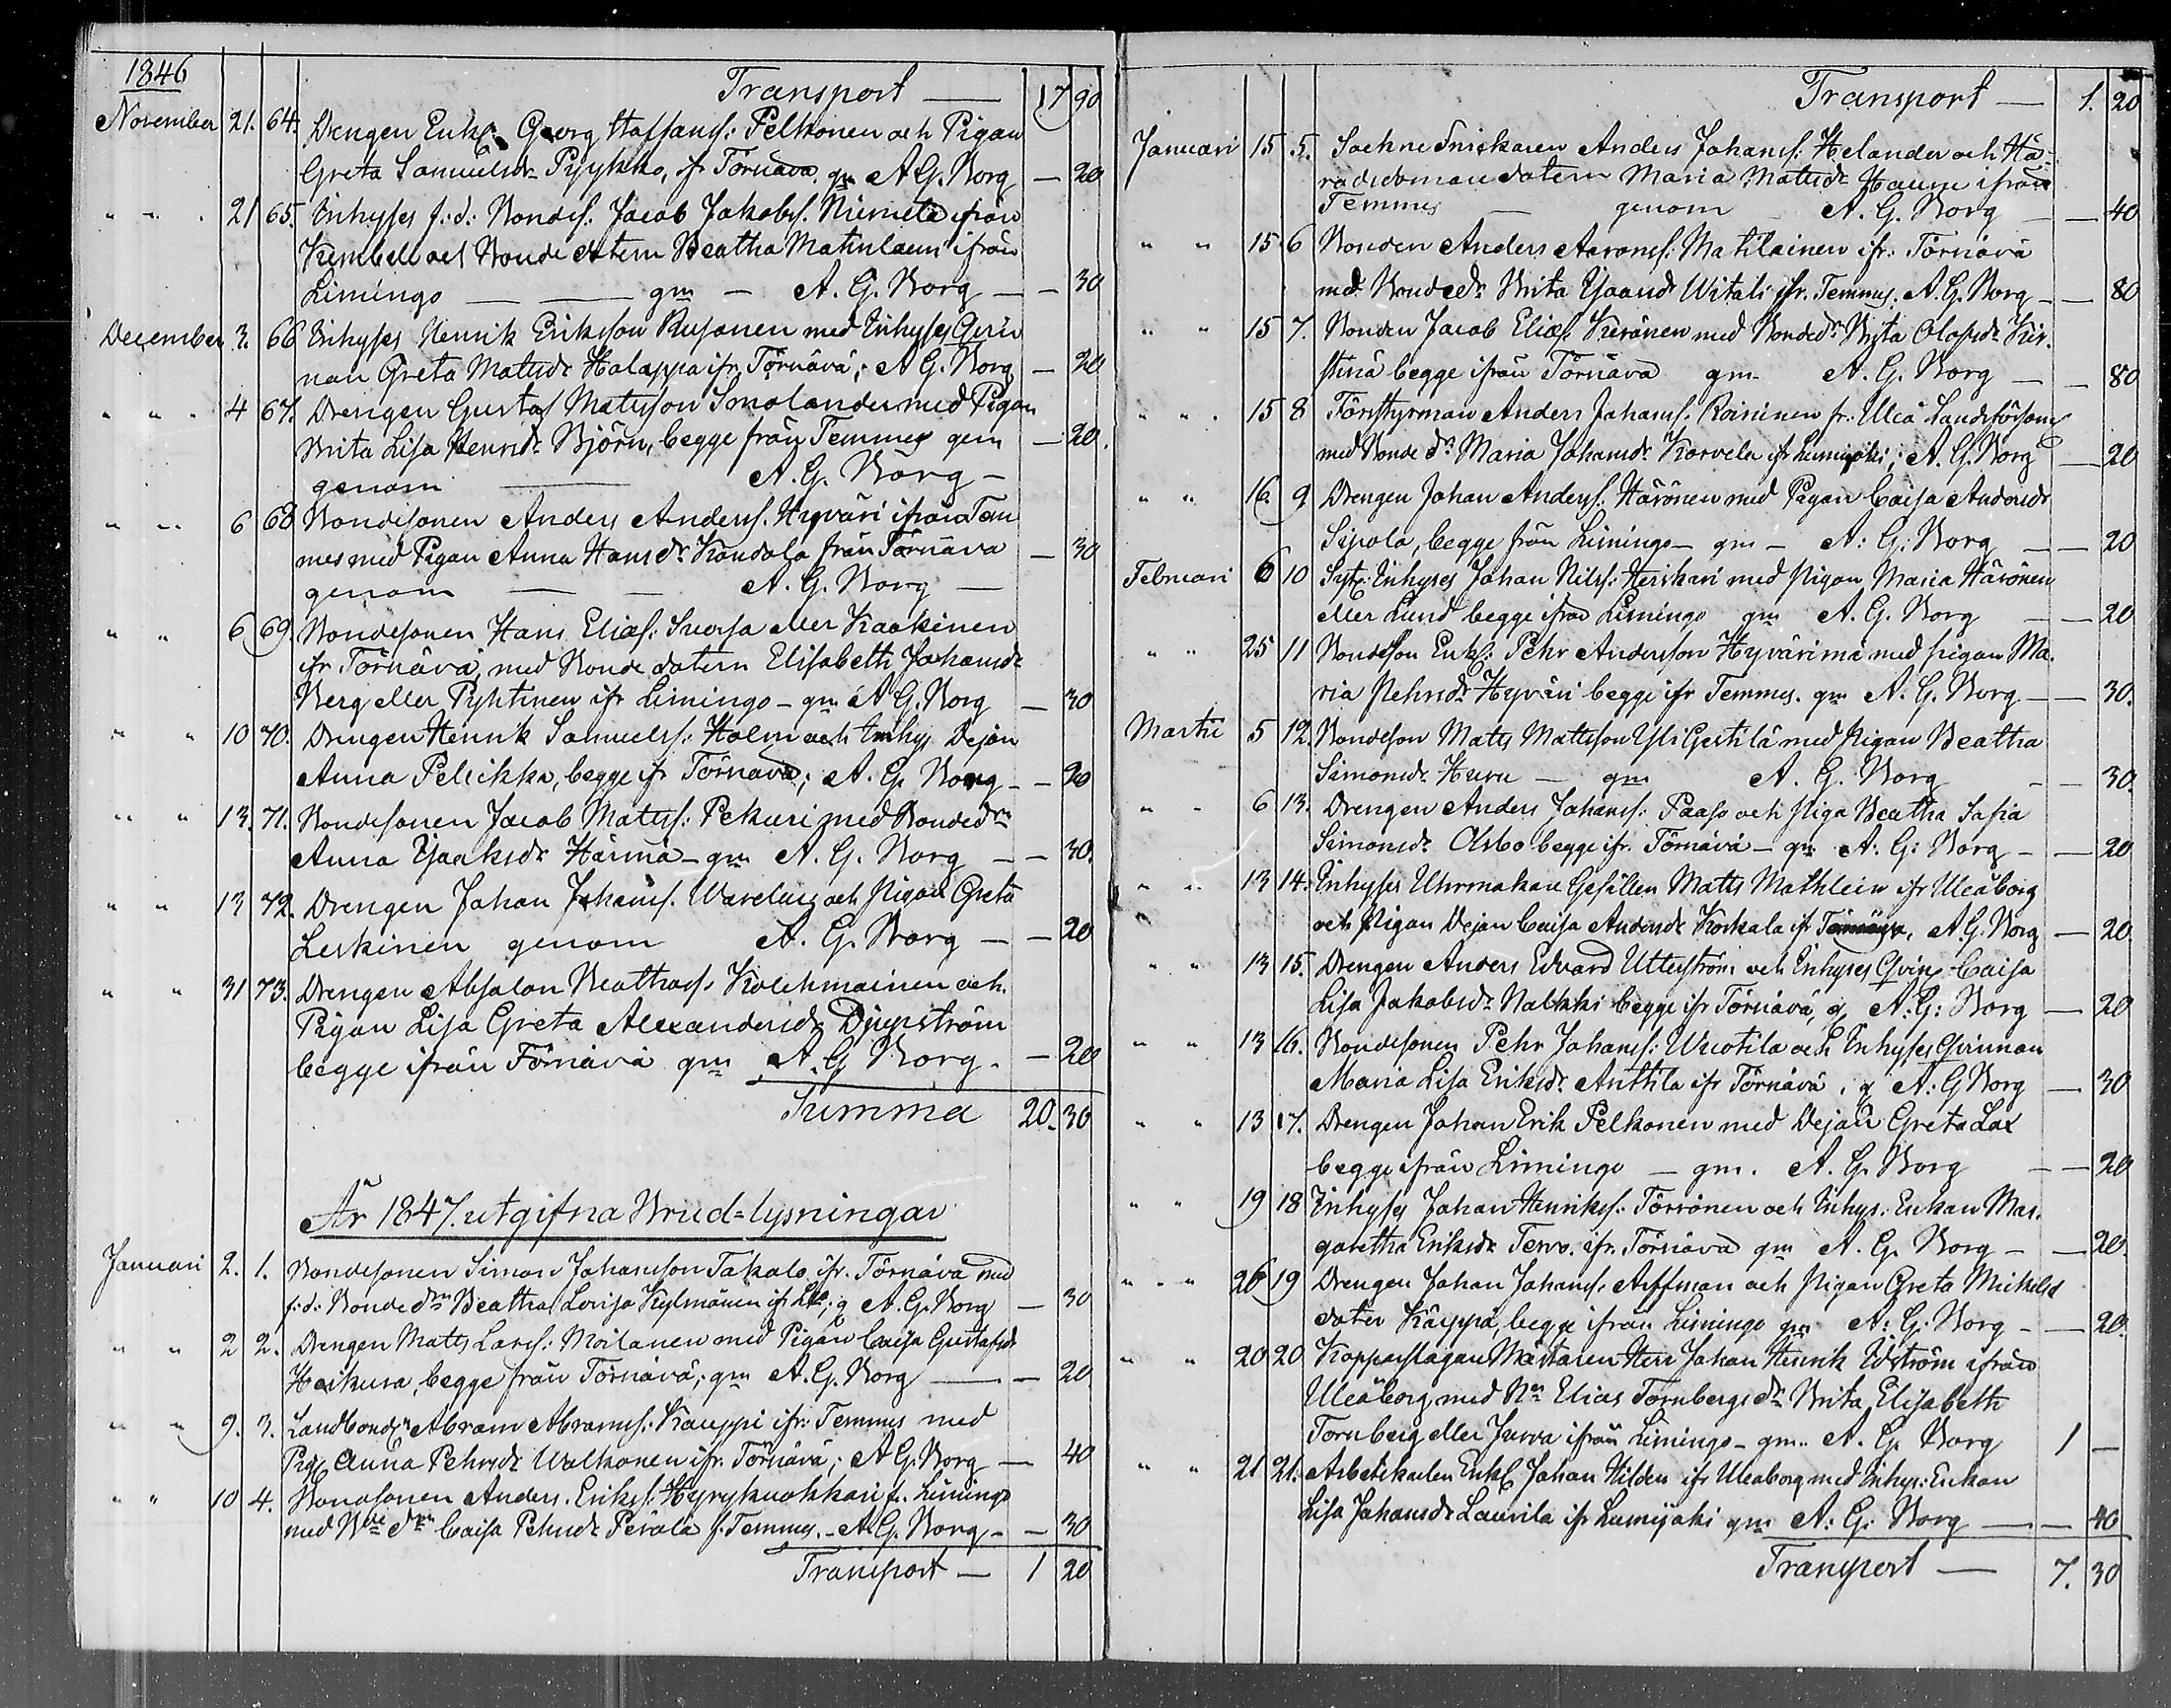 1846
Transport — 17 90
November 21. 64. Drengen Enkl: Georg Staffans: Pelkonen och Pigan
Greta Samuelsdr Pyykkö, ifr Törnävä. gm A G. Borg — 20
" " 21 65. Inhyses f: d: Bondes. Jacob Jakobss. Niemelä ifrån
Kembele och Bonde dotern Beatha Matinlauri ifrån
Limingo — gm — A. G. Borg — 30
December 3. 66 Inhyses Henrik Eriksson Rusanen med Inhyses Qvin
nan Greta Matsdr Halappa ifr. Törnävä; A G. Borg — 20
" " 4 67. Drengen Gustaf Matsson Smolander med Pigan
Brita Lisa Henrdr Björn, begge från Temmes gem — 20.
genom — A. G. Borg —
" " 6 68 Bondesonen Anders Anderss. Hyväri ifrån Tem
mes med Pigan Anna Hansdr Kandola från Törnävä — 30
genom — — A. G. Borg —
" " 6 69. Bondesonen Hans Eliass: Suorsa eller Kaakinen
ifr Törnävä, med Bonde dotern Elisabeth Johansdr
Berg eller Pyhtinen ifr Limingo — gm A G. Borg — 30
" " 10 70. Drengen Henrik Samuelss: Holm och Inhys Dejan
Anna Pelikka, begge ifr Törnävä; A. G. Borg — 20
" " 13. 71. Bondesonen Jacob Matss: Pekuri med Bondedrn
Anna Yaaksdr Härmä — gm A. G. Borg — 30.
" " 13 72. Drengen Johan Johanss. Warelius och Pigan Greta
Leskinen genom A. G. Borg — 20
" " 31 73. Drengen Absalon Beathass: Kolehmainen och
Pigan Lisa Greta Alexandersdr Djupström
begge ifrån Törnävä gm A. G Borg. — 20
Summa 20. 30
År 1847. utgifna Brud=lysningar
Januari 2. 1. Bondesonen Simon Johansson Takalo ifr. Törnävä med
f: d: Bonde drn Beatha Lovisa Kylmänen ifr Lgo; g A. G. Borg — 30
" " 2 2. Drengen Matts Larss: Moilanen med Pigan Caisa Gustafsdr
Heikura, begge från Törnävä; gm A. G. Borg — 20
" " 9. 3. Landbonden Abram Abramss: Kauppi ifr: Temmes med
Pig: Anna Pehrsdr Walkonen ifr. Törnävä; A G. Borg — 40
" " 10 4. Bondsonen Anders Erikss: Hyrykuokkari fr. Limingo
med Bde drn Caisa Pehrsdr Perälä f. Temmes. — A G. Borg — 30
Transport — 1 20
Transport — 1. 20
Januari 15 5. Sockne Snickaren Anders Johanss: Helander och Hä-
radsdomandotern Maria Matsdr Haume ifrån
Temmes — genom A. G. Borg — 40
" " 15 6 Bonden Anders Aaronss: Matilainen ifr. Törnävä
med Bondedr Brita Yaansdr Witali ifr. Temmes. A. G. Borg — 80
" " 15 7. Bonden Jacob Eliass. Keränen med Bondedr Brita Olofsdr Kir-
stinä begge ifrån Törnävä gm A. G. Borg — 80
" " 15 8 Förstyrman Anders Johanss. Roininen fr. Uleå Landsförsam
med Bonde dr Maria Johansdr Korvela ifr Lumijoki; A. G. Borg — 20
" " 16. 9 Drengen Johan Anderss. Härönen med Pigan Caisa Andersdr
Sipola, begge från Limingo — gm — A: G: Borg — 20
Februari 6 10 Syt: Inhyses Johan Nilss: Heiskari med pigan Maria Härönen
eller Lund begge ifrån Limingo gm A. G. Borg — 20
" " 25 11 Bondeson Enkl: Pehr Andersson Hyvärimä med pigan Ma-
ria Pehrsdr Hyväri begge ifr Temmes. gm A. G. Borg — 30.
Martii 5 12. Bondeson Matts Mattsson Yli Gestilä med pigan Beatha
Simonsdr Huru — gm A. G. Borg — 30.
" " 6 13. Drengen Anders Johanss: Paaso och piga Beatha Safia
Simonsdr Olsbo begge ifr. Törnävä — gm A: G: Borg — 20
" " 13 14. Inhyses Uhrmakare Gesällen Matts Mathlein ifr Uleåborg
" och Pigan Dejan Caisa Andersdr Koskala ifr Törnävä, A. G. Borg — 20.
" " 13 15. Drengen Anders Edvard Utterström och Inhyses Qvin: Caisa
Lisa Jakobsdr Nalkki begge ifr Törnävä, g A: G: Borg — 20
" " 13 16. Bondesonen Pehr Johanss: Wuotila och Inhyses Qvinnan
Maria Lisa Eriksdr Anttila ifr Törnävä. g A: G Borg — 30
" " 13 17. Drengen Johan Erik Pelkonen med Dejan Greta Lax
begge ifrån Limingo — gm. A. G. Borg — 20
" " 19 18 Inhyses Johan Henrikss: Törrönen och Inhys. Enkan Mar-
garetha Eriksdr Tervo. ifr. Törnävä gm A. G. Borg — 20.
" " 26 19 Drengen Johan Johanss. Aiffman och Pigan Greta Mickelsd
doter Käippä, begge ifrån Limingo gm A: G. Borg — 20.
" " 20 20 Kopparslagare Mästaren Herr Johan Henrik Edström ifrån
Uleåborg, med Bn Elias Tornbergs dr Brita Elisabeth
Tornberg eller Jurva ifrån Limingo — gm. A. G. Borg 1 —
" " 21 21. Arbetskarlen Enkl: Johan Hilden ifr Uleaborg med Inhys: Enkan
Lisa Johansdr Laurila ifr Lumijoki gm A: G: Borg — 40
Transport — 7. 30